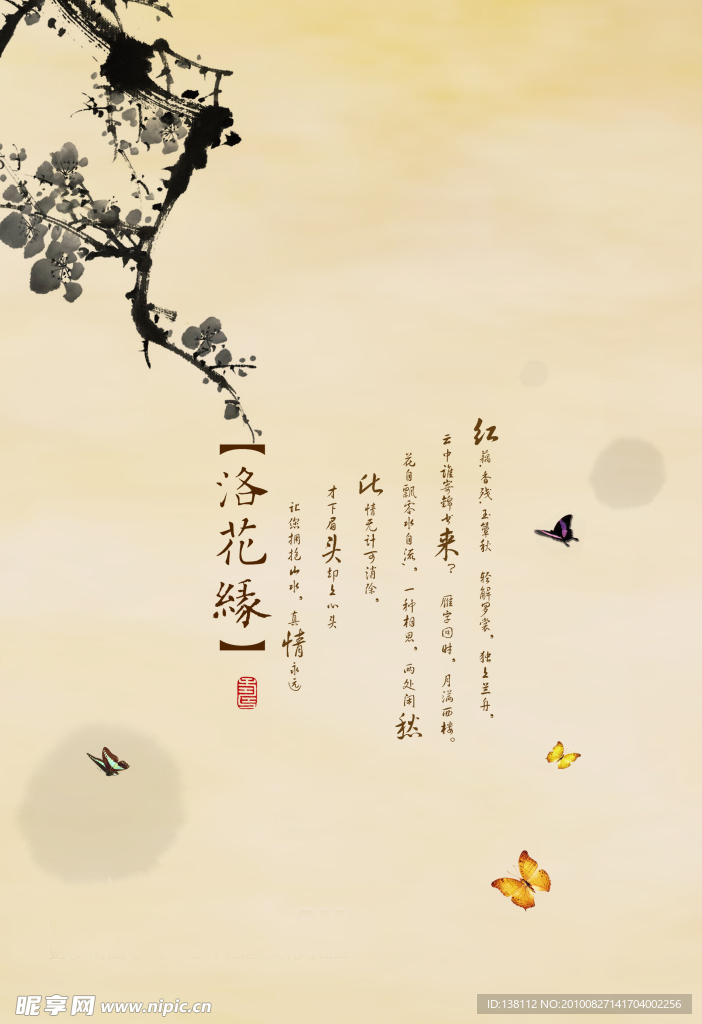 红藕香残玉簟秋 轻解罗裳，独上兰舟。
云中谁寄锦书来？ 雁字回时，月满西楼。
花自飘零水自流。 一种相思，两处闲愁
此情无计可消除。
才下眉头却上心头
让您拥抱山水，真情永远
【洛花緣】
昵享网 www.nipic.cn
ID:138112 NO:20100827141704002256